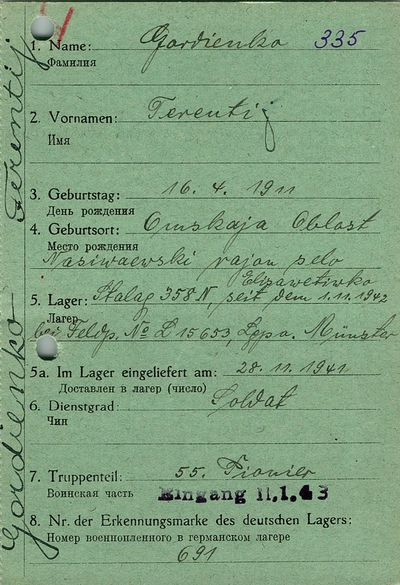 1. Name: Gordienko 335
Фамилия
2. Vornamen: Terentij
Имя
3. Geburtstag: 16. 4. 1911
День рождения
4. Geburtsort: Omskaja Oblast
Место рождения
Nasiwaewski rajon selo
Elisawetinko
5. Lager: Stalag 358 N, seit dem 1.11.1942
Лагер
bei Feldp. No L 15653, Münster
5a. Im Lager eingeliefert am: 28. 11. 1941
Доставлен в лагер (число)
6. Dienstgrad: Soldat
Чин
7. Truppenteil: 55. Pionier
Воинская часть Eingang 11.1.43
8. Nr. der Erkennungsmarke des deutschen Lagers:
Номер военнопленного в германском лагере
691
Gordienko Terentij